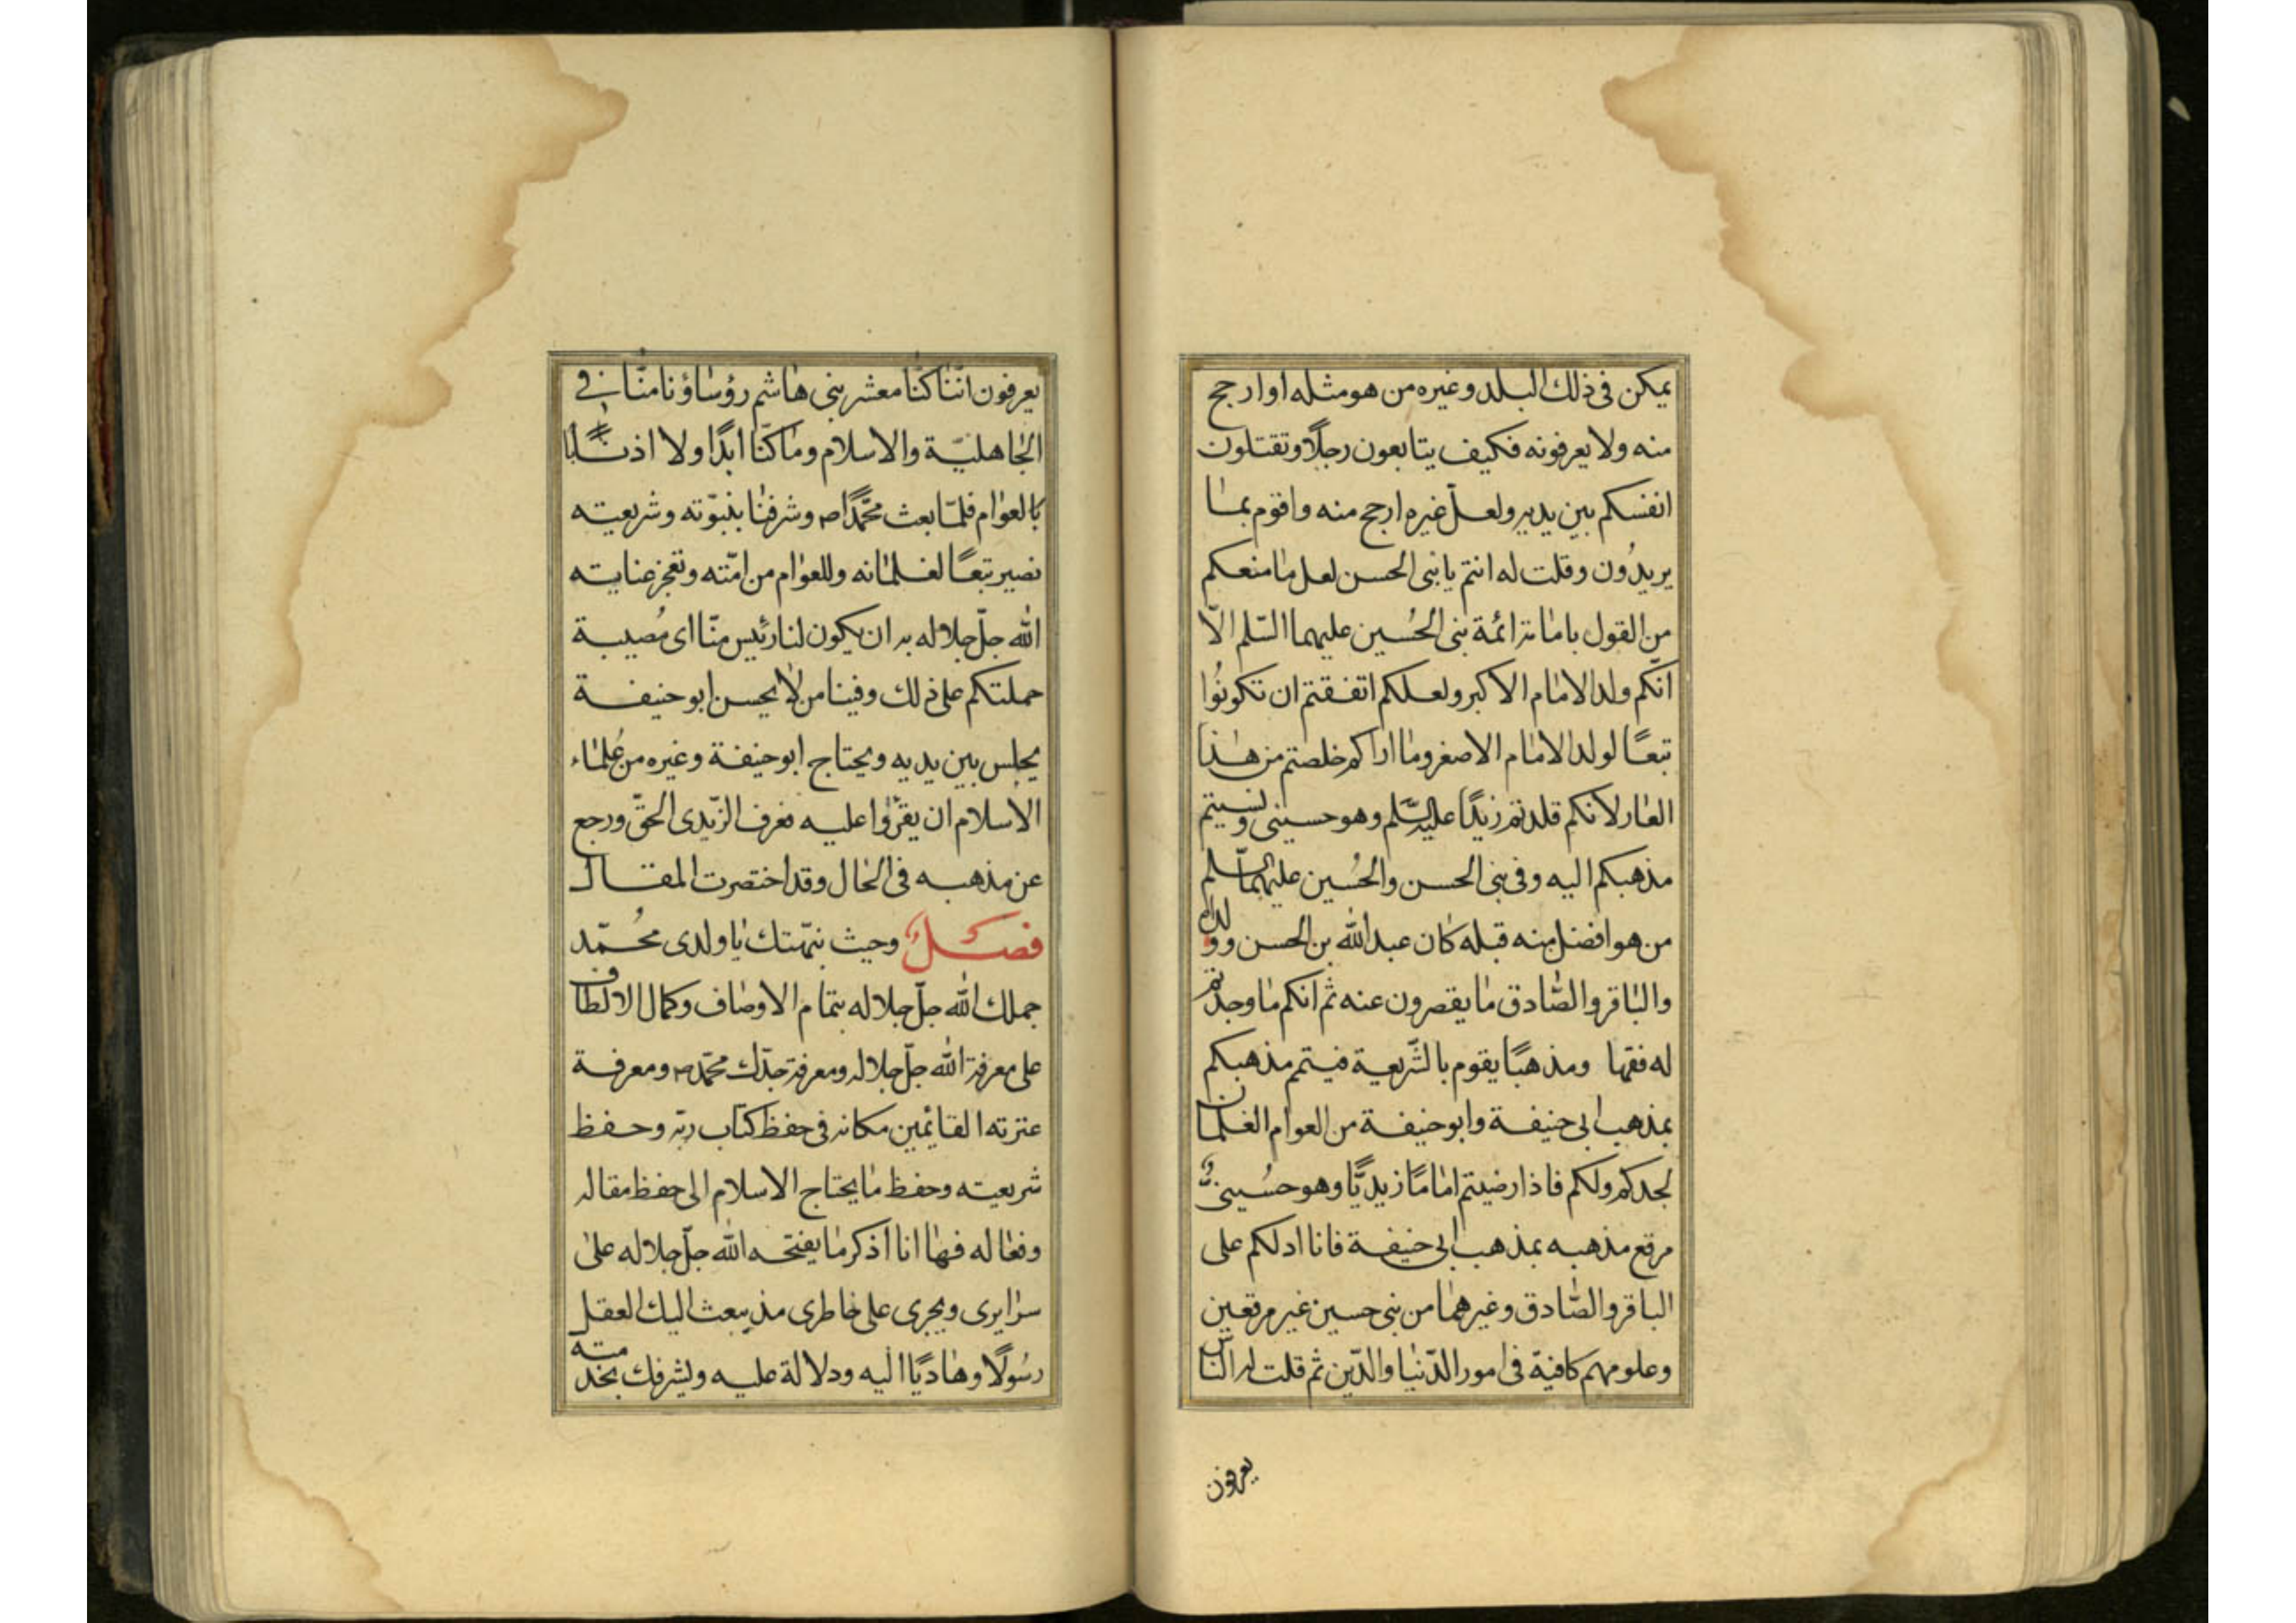 يمكن فى ذلك البلد وغيره من هو مثله او ارجح
منه ولا يعرفونه فكيف يتابعون رجلًا وتقتلون
انفسكم بين يديه ولعلّ غيره ارجح منه واقوم بما
يريدُون وقلت له انتم يا بنى الحسن لعل ما منعكم
من القول بامامته ائمة بنى الحُسين عليهما السّلم الّا
انّكم ولد الامام الاكبر ولعلكم اتفقتم ان تكونُوا
تبعًا لولد الامام الاصغر وما اراكم خلصتم من هذا
العار لانكم قلدتم زيدًا عليه السّلم وهو حسينى ونسيتم
مذهبكم اليه وفى بنى الحسن والحُسين عليهما السّلم
من هو افضل منه قبله كان عبد الله بن الحسن وولداه
والباقر والصّادق ما يقصرون عنه ثم انكم ما وجدتم
له فقها ومذهبًا يقوم بالشّريعة فيتمم مذهبكم
بمذهب ابى حنيفة وابو حنيفة من العوام الغلمان
لجدكم ولكم فاذا رضيتم امامًا زيديًّا وهو حسُينىّ
مرقع مذهبه بمذهب ابى حنيفة فانا ادلكم على
الباقر والصّادق وغيرهما من بنى حسين غير مرقعين
وعلومهم كافية فى امور الدّنيا والدّين ثم قلت له النّاس
يعرفون
يعرفون انّنا كنّا معشر بنى هاشم رؤساؤنا منّا فى
الجاهليّة والاسلام وما كنّا ابدًا ولا اذنابًا
بالعوام فلمّا بعث محمّدًا ص وشرفنا بنبوّته وشريعته
نصير تبعًا لغلمانه وللعوام من امّته وتعجز عنايته
الله جلّ جلاله به ان يكون لنا رئيس منّا اى مُصيبة
حملتكم على ذلك وفينا من لا يحسن ابو حنيفة
يجلس بين يديه ويحتاج ابو حنيفة وغيره من عُلماء
الاسلام ان يقرؤا عليه فعرف الزّيدى الحقّ ورجع
عن مذهبه فى الحال وقد اختصرت المقال
فصل وحيث نبّهتك يا ولدى مُحمّد
جملك الله جلّ جلاله بتمام الاوصاف وكمال الالطاف
على معرفة الله جلّ جلاله ومعرفة جدّك محمّد ص ومعرفة
عترته القائمين مكانه فى حفظ كتاب ربّه وحفظ
شريعته وحفظ ما يحتاج الاسلام الى حفظ مقاله
وفعاله فها انا اذكر ما يفتحه الله جلّ جلاله على
سرايرى ويجرى على خاطرى مذ يبعث اليك العقل
رسُولًا وهاديًا اليه ودلالة عليه ويشرفك بخدمته